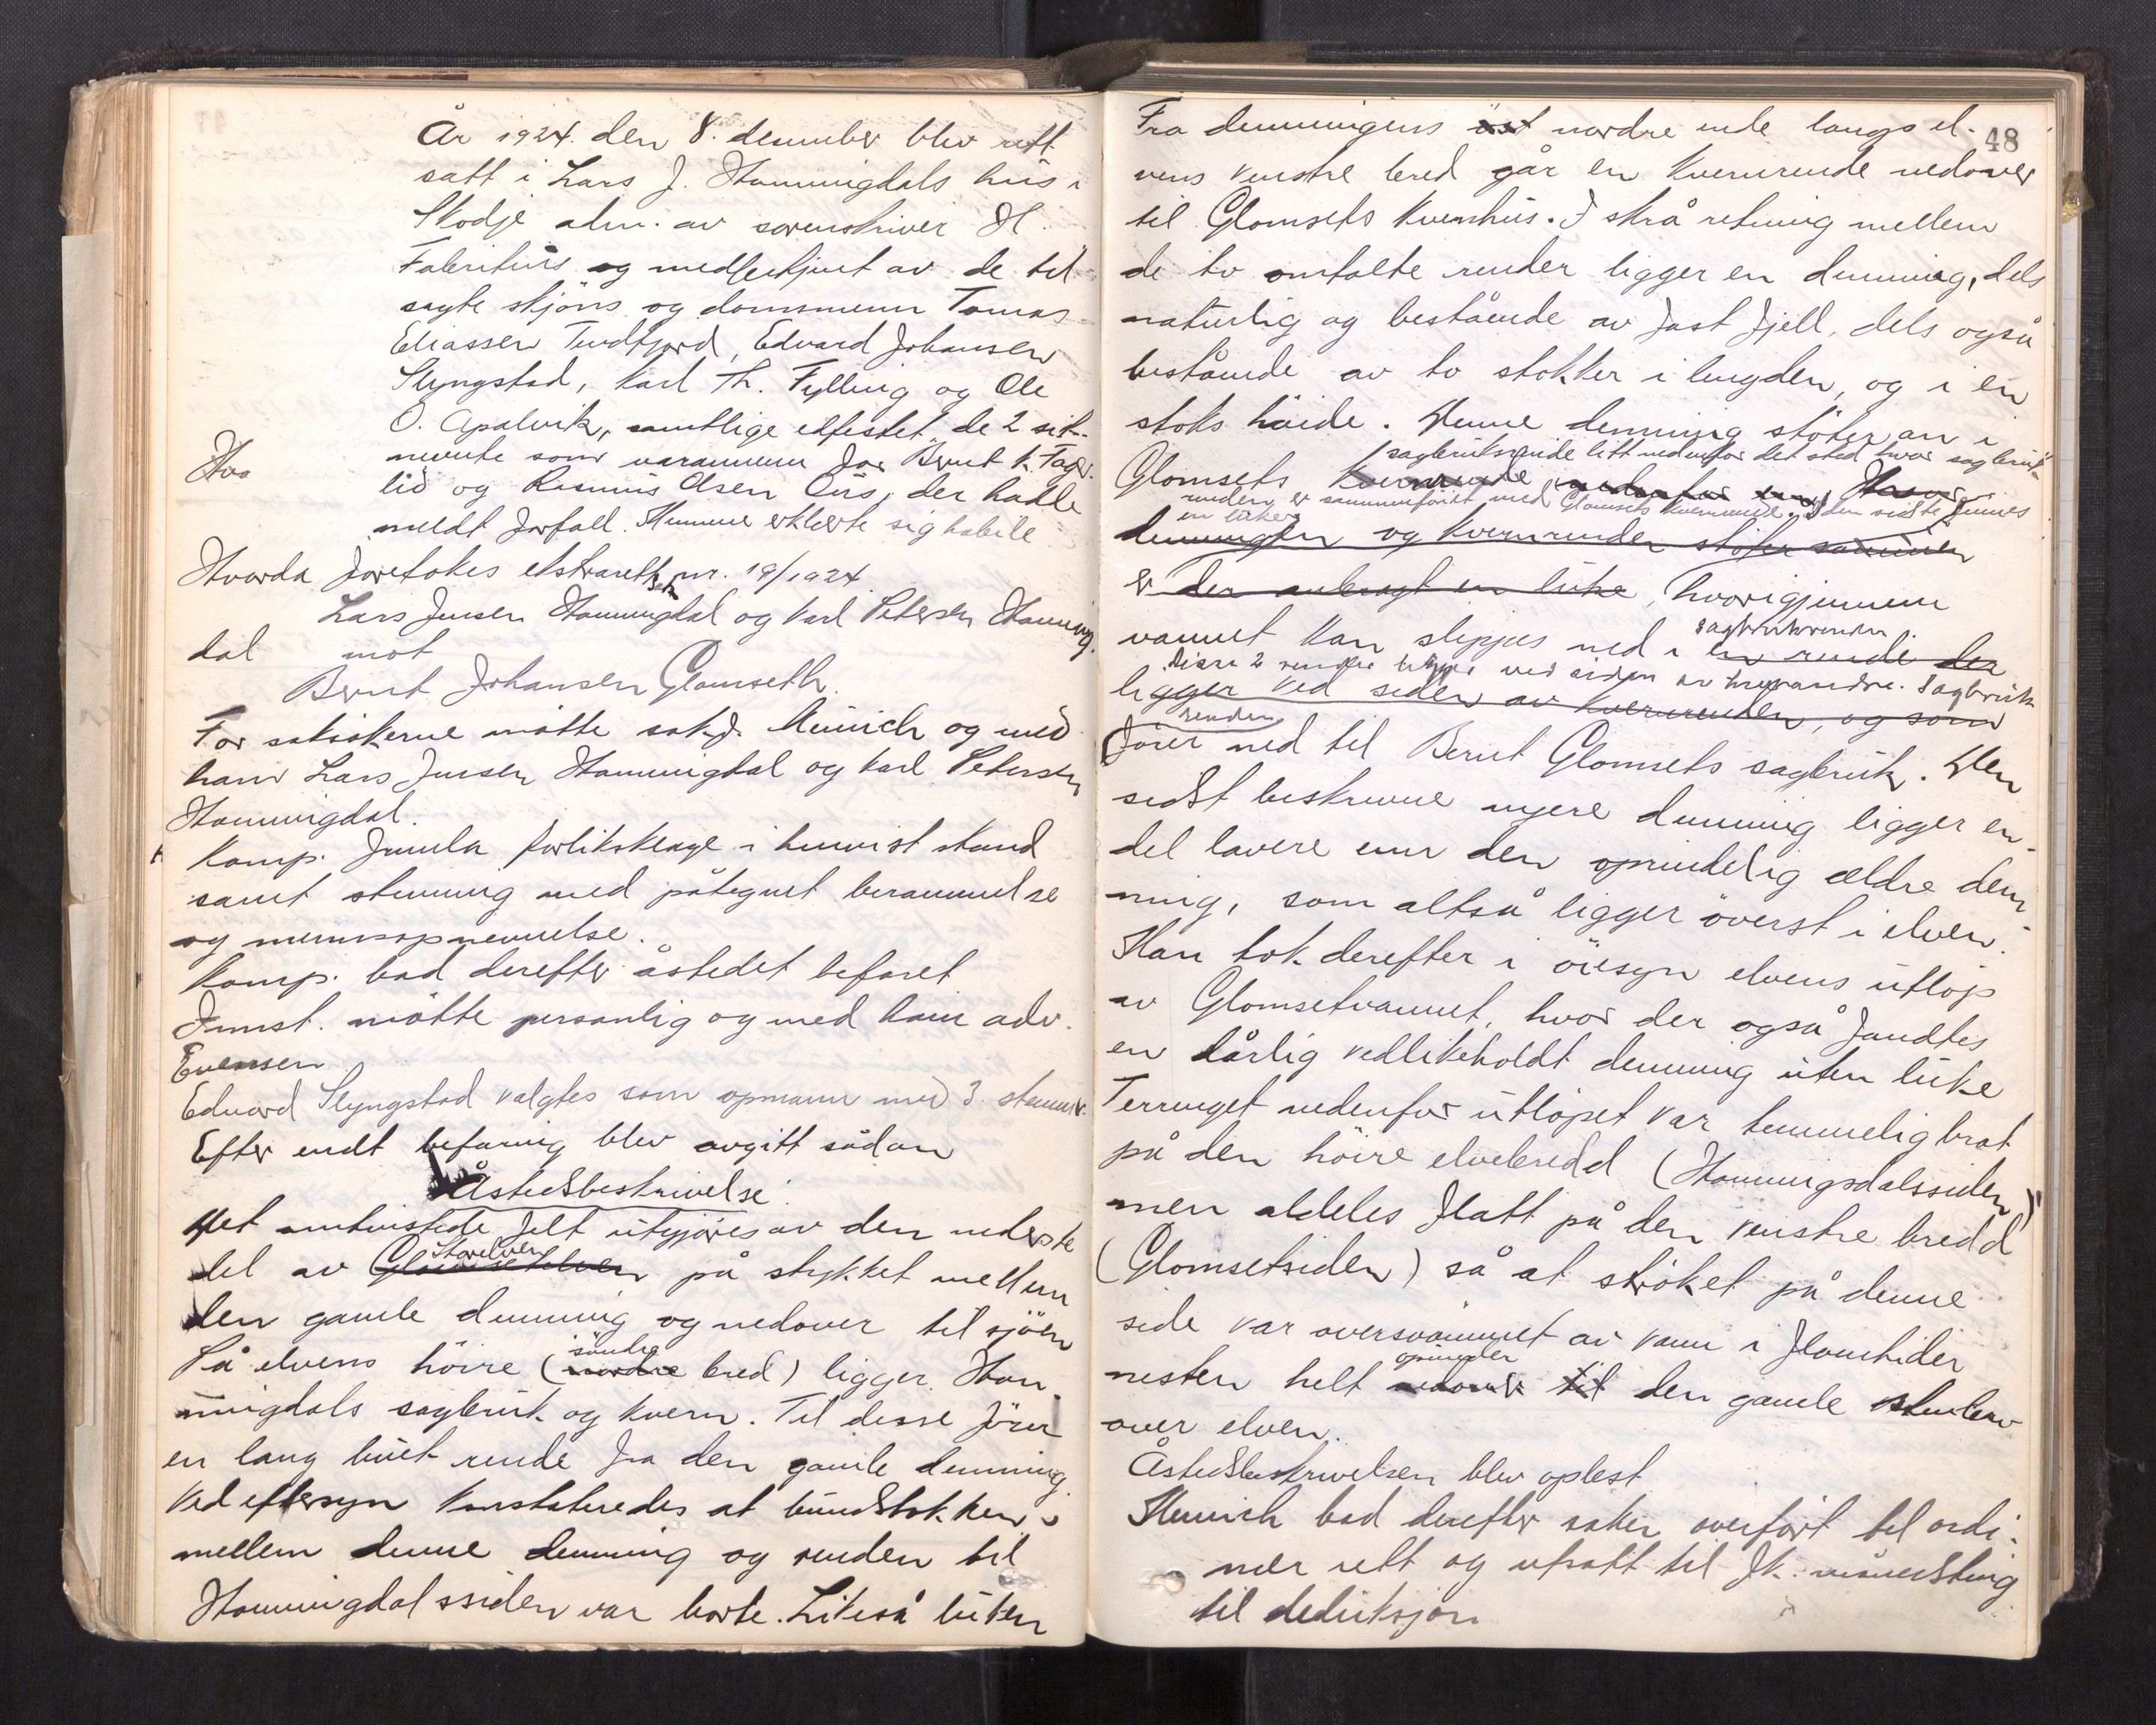 År 1924. den 8. desember blev rett
satt i Lars J. Hanningdals hus i
Skodje adm. av sorenskriver H.
Fabritius og medbetjent av de til-
sagte skjöns og domsmenn Tomas
Eliassen Tindfjord, Edvard Johansen
Slyngstad, Karl Th. Fylling og Ole
O. Apalvik, samtlige edfestet, de 2 sist-
nevnte som varamenn for Bernt K. Fager-
Hvo
lid og Rasmus Olsen Aus, der hadde
meldt forfall. Mennene erklærte sig habile
Hvorda foretokes ekstrarettssak nr. 19/1924
Lars Jensen Hanningdal og Karl Petersen Hanning-
dal mot
Bernt Johansen Glomseth.
For saksökerne mötte sakf. Münich og med
ham Lars Jensen Hanningdal og Karl Petersen
Hanningdal.
Komp. fremla forliksklage i henvist stand
samt stemning med påtegnet berammelse
og mennsopnevnelse.
Komp. bad derefter åstedet befaret
Innst. mötte personlig og med ham adv.
Evensen
Edvard Slyngstad valgtes som opmann med 3. stemmer.
Efter endt befaring blev avgitt sådan
Åstedsbeskrivelse:
Det omtvistede felt utgjöres av den nederste
Storelven
del av Glomsetelven på stykket mellem
den gamle demning og nedover til sjöen
söndre
På elvens höire (nordre bred) ligger Han-
ningdals sagbruk og kvern. Til disse förer
en lang buet rende fra den gamle demning.
Ved eftersyn konstateredes at bundstokken i
mellem denne demning og renden til
Hanningdalssiden var borte. Likeså luken
48
Fra demningens öst nordre ende langs el-
vens venstre bred går en kvernrende nedover
til Glomsets kvernhus. I skrå retning mellem
de to omtalte render ligger en demning, dels
naturlig og bestående av fast fjell, dels også
bestående av to stokker i lengden, og i en
stoks höide. Denne demning stöter an i
sagbruksrende litt nedenfor det sted hvor sagbruk-
Glomsets kvernrende nedenfor
renden er sammenföiet med Glomsets kvernrende. I den siste finnes
en luke
demningen og kvernrenden stöter sammen
er der anbragt en luke, hvorigjennem
sagbruksrenden.
vannet kan slippes ned i en rende der
Disse 2 render ligger ved siden av hverandre. Sagbruk
ligger ved siden av kvernrenden, og som
renden
förer ned til Bernt Glomsets sagbruk. Den
sidst beskrevne nyere demning ligger en
del lavere enn den oprindelig ældre dem-
ning, som altså ligger överst i elven.
Man tok derefter i öiesyn elvens utlöp
av Glomsetvannet, hvor der også fandtes
en dårlig vedlikeholdt demning uten luke
Terrenget nedenfor utlöpet var temmelig brat
på den höire elvebredd (Hanningsdalssiden)
men aldeles flatt på den venstre bredd
(Glomsetsiden) så at ströket på denne
side var oversvömmet av vann i flomtider
opunder
nesten helt nedover til den gamle stenbro
over elven.
Åstedsbeskrivelsen blev oplest
Münich bad derefter saken overfört til ordi-
nær rett og utsatt til fk. månedsting
til deduksjon